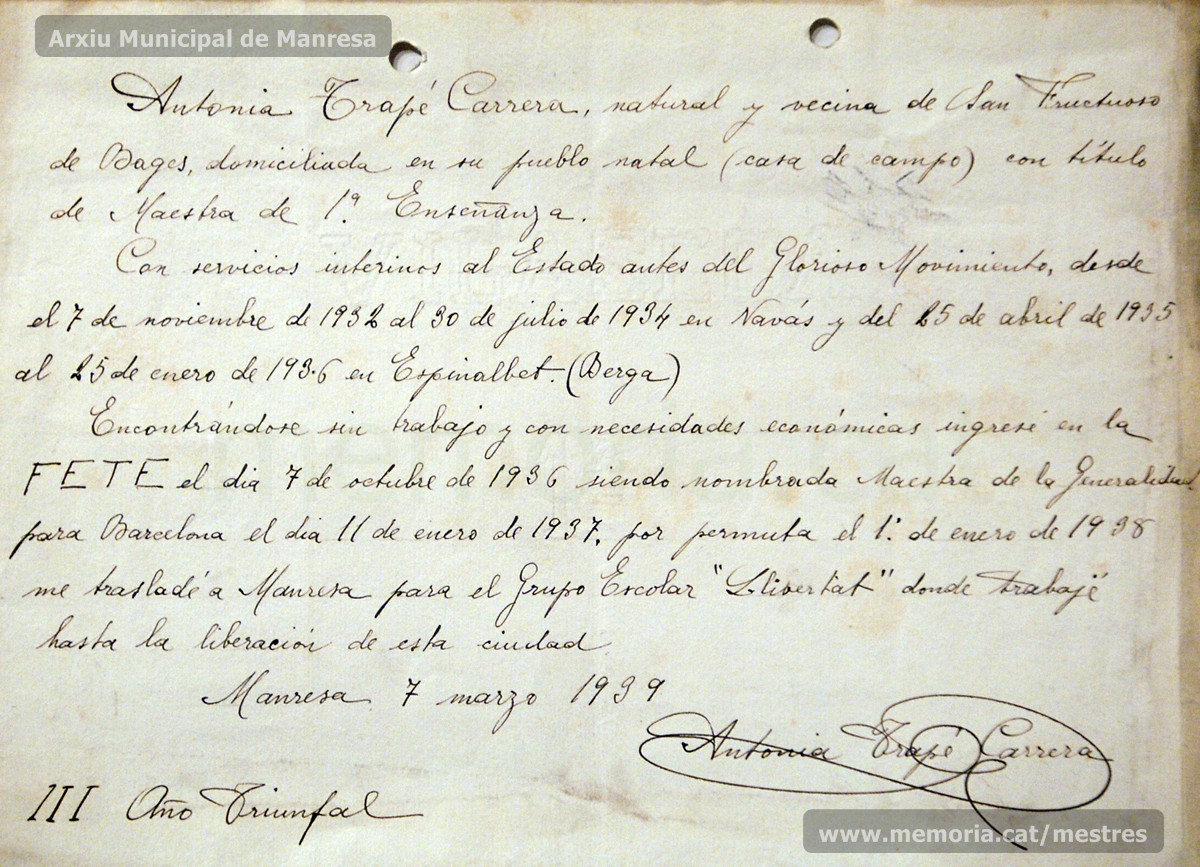 Arxiu Municipal de Manresa
Antonia Trapé Carrera, natural y vecina de San Fructuoso
de Bages, domiciliada en su pueblo natal (casa de campo) con título
de Maestra de 1ª. Enseñanza.
Con servicios interinos al Estado antes del Glorioso Movimiento, desde
el 7 de noviembre de 1932 al 30 de julio de 1934 en Navás y del 25 de abril de 1935
al 25 de enero de 1936 en Espinalbet. (Berga)
Encontrándose sin trabajo y con necesidades económicas ingresé en la
FETE el dia 7 de octubre de 1936 siendo nombrada Maestra de la Generalidad
para Barcelona el dia 11 de enero de 1937, por permuta el 1º. de enero de 1938
me trasladé a Manresa para el Grupo Escolar "Llibertat" donde trabajé
hasta la liberación de esta ciudad
Manresa 7 marzo 1939
Antonia Trapé Carrera
III Año Triunfal
www.memoria.cat/mestres